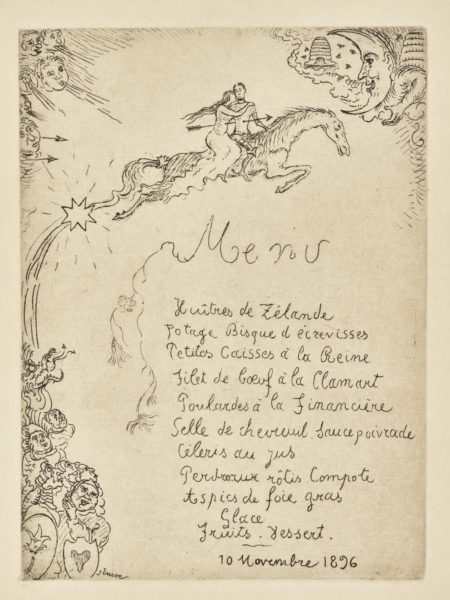 Menu
Huîtres de Zélande
Potage Bisque d'écrevisses
Petites Caisses à la Reine
Filet de bœuf à la Clamart
Poulardes à la Financière
Selle de chevreuil sauce poivrade
Céleris au jus
Perdreaux rôtis Compote
Aspics de foie gras
Glace
Fruits . Dessert .
10 Novembre 1896
J Ensor